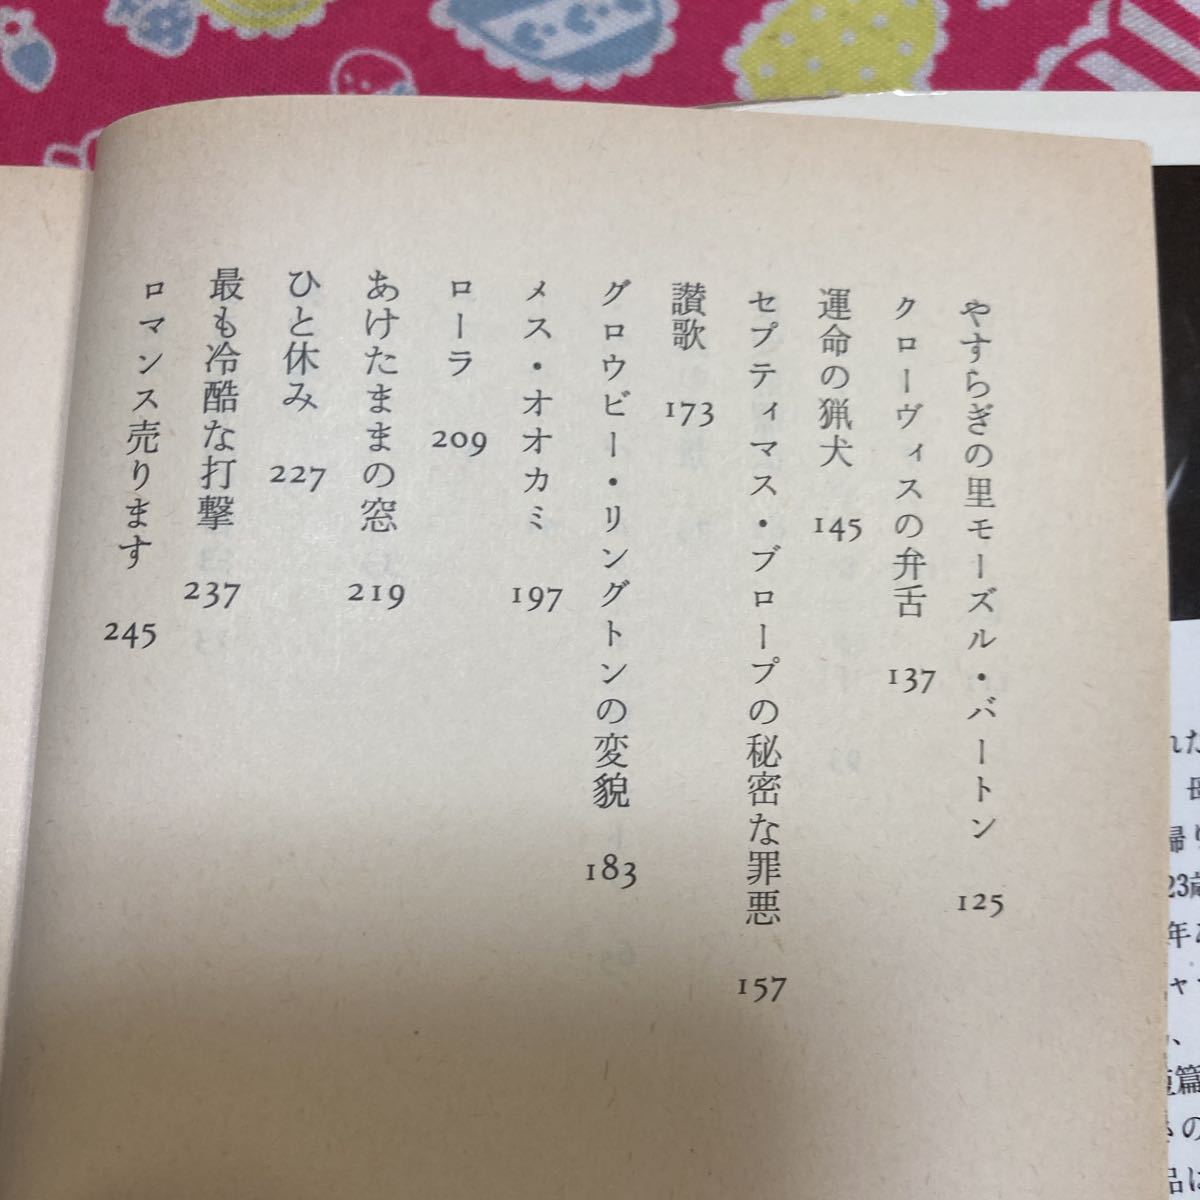 やすらぎの里モーズル・バートン 125
クローヴィスの弁舌 137
運命の猟犬 145
セプティマス・ブロープの秘密な罪悪 157
讃歌 173
グロウビー・リングトンの変貌 183
メス・オオカミ 197
ローラ 209
あけたままの窓 219
ひと休み 227
最も冷酷な打撃 237
ロマンス売ります 245